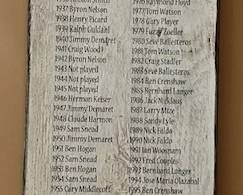 1937 Byron Nelson
1938 Henry Picard
1939 Ralph Guldahl
1940 Jimmy Demaret
1941 Craig Wood
1942 Byron Nelson
1943 Not played
1944 Not played
1945 Not played
1946 Herman Keiser
1947 Jimmy Demaret
1948 Claude Harmon
1949 Sam Snead
1950 Jimmy Demaret
1951 Ben Hogan
1952 Sam Snead
1953 Ben Hogan
1954 Sam Snead
1955 Cary Middlecoff
1976 Raymond Floyd
1977 Tom Watson
1978 Gary Player
1979 Fuzzy Zoeller
1980 Seve Ballesteros
1981 Tom Watson
1982 Craig Stadler
1983 Seve Ballesteros
1984 Ben Crenshaw
1985 Bernhard Langer
1986 Jack Nicklaus
1987 Larry Mize
1988 Sandy Lyle
1989 Nick Faldo
1990 Nick Faldo
1991 Ian Woosnam
1992 Fred Couples
1993 Bernhard Langer
1994 Jose Maria Olazabal
1995 Ben Crenshaw